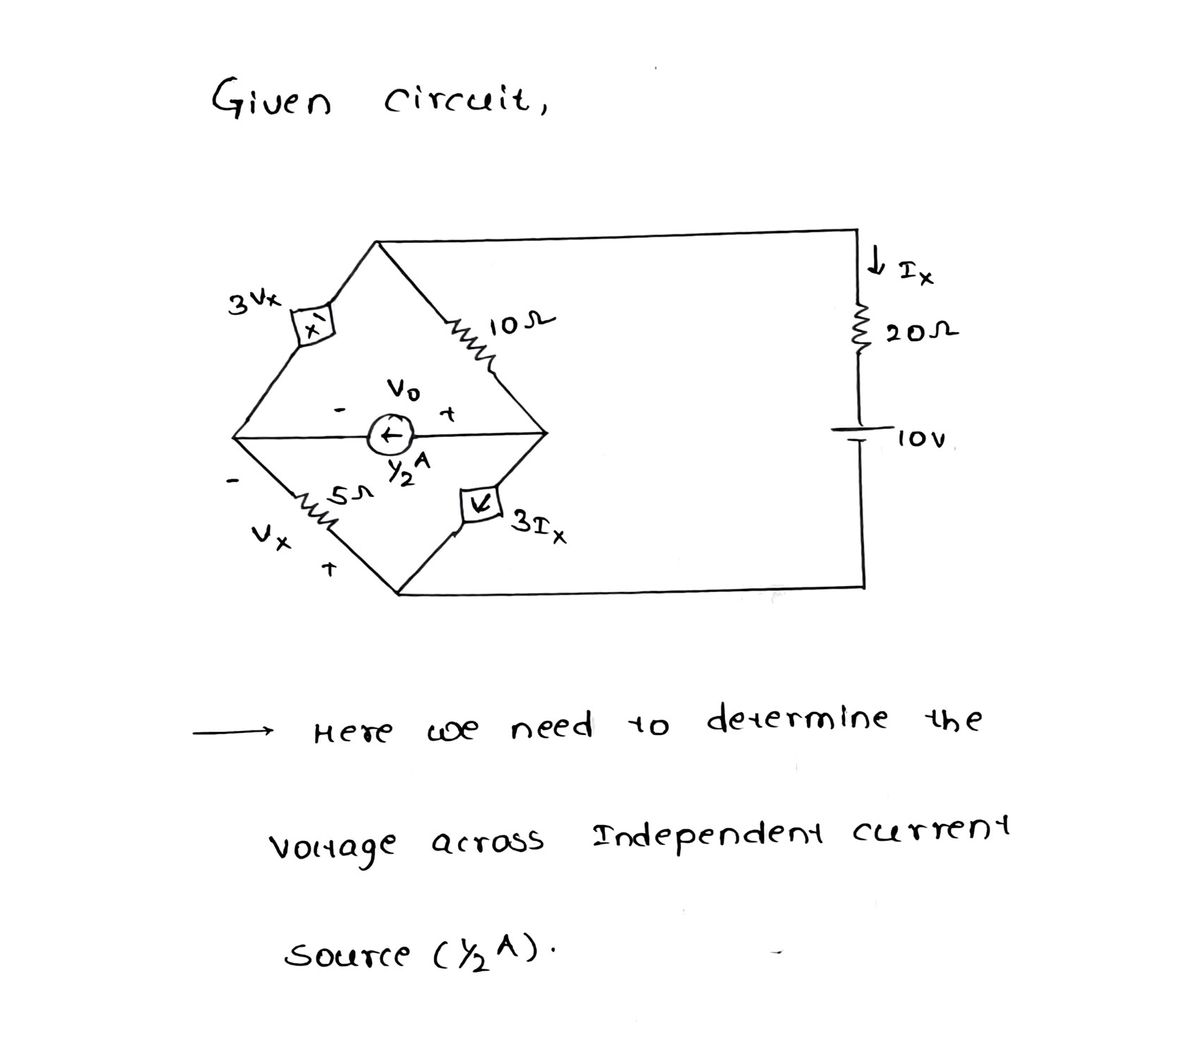 Given circuit,
↓ Ix
3Vx
10Ω
20Ω
Vo
- +
10V
½ A
5Ω
-
3Ix
Vx
+
→ Here we need to determine the
voltage across Independent current
source (½ A).